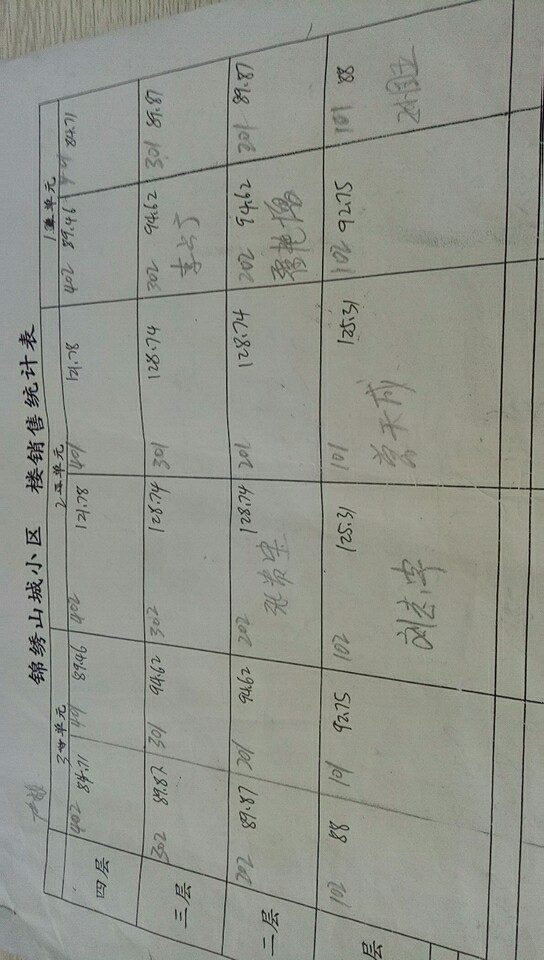 锦绣山城小区 楼销售统计表
3 单元 2 单元 1 单元
四层 402 84.71 401 89.46 402 121.78 401 121.78 402 89.46 401 84.71
三层 302 89.87 301 94.62 302 128.74 301 128.74 302 94.62 301 89.87
二层 202 89.87 201 94.62 202 128.74 201 128.74 202 94.62 201 89.87
层 102 88 101 92.75 102 125.31 101 125.31 102 92.75 101 88